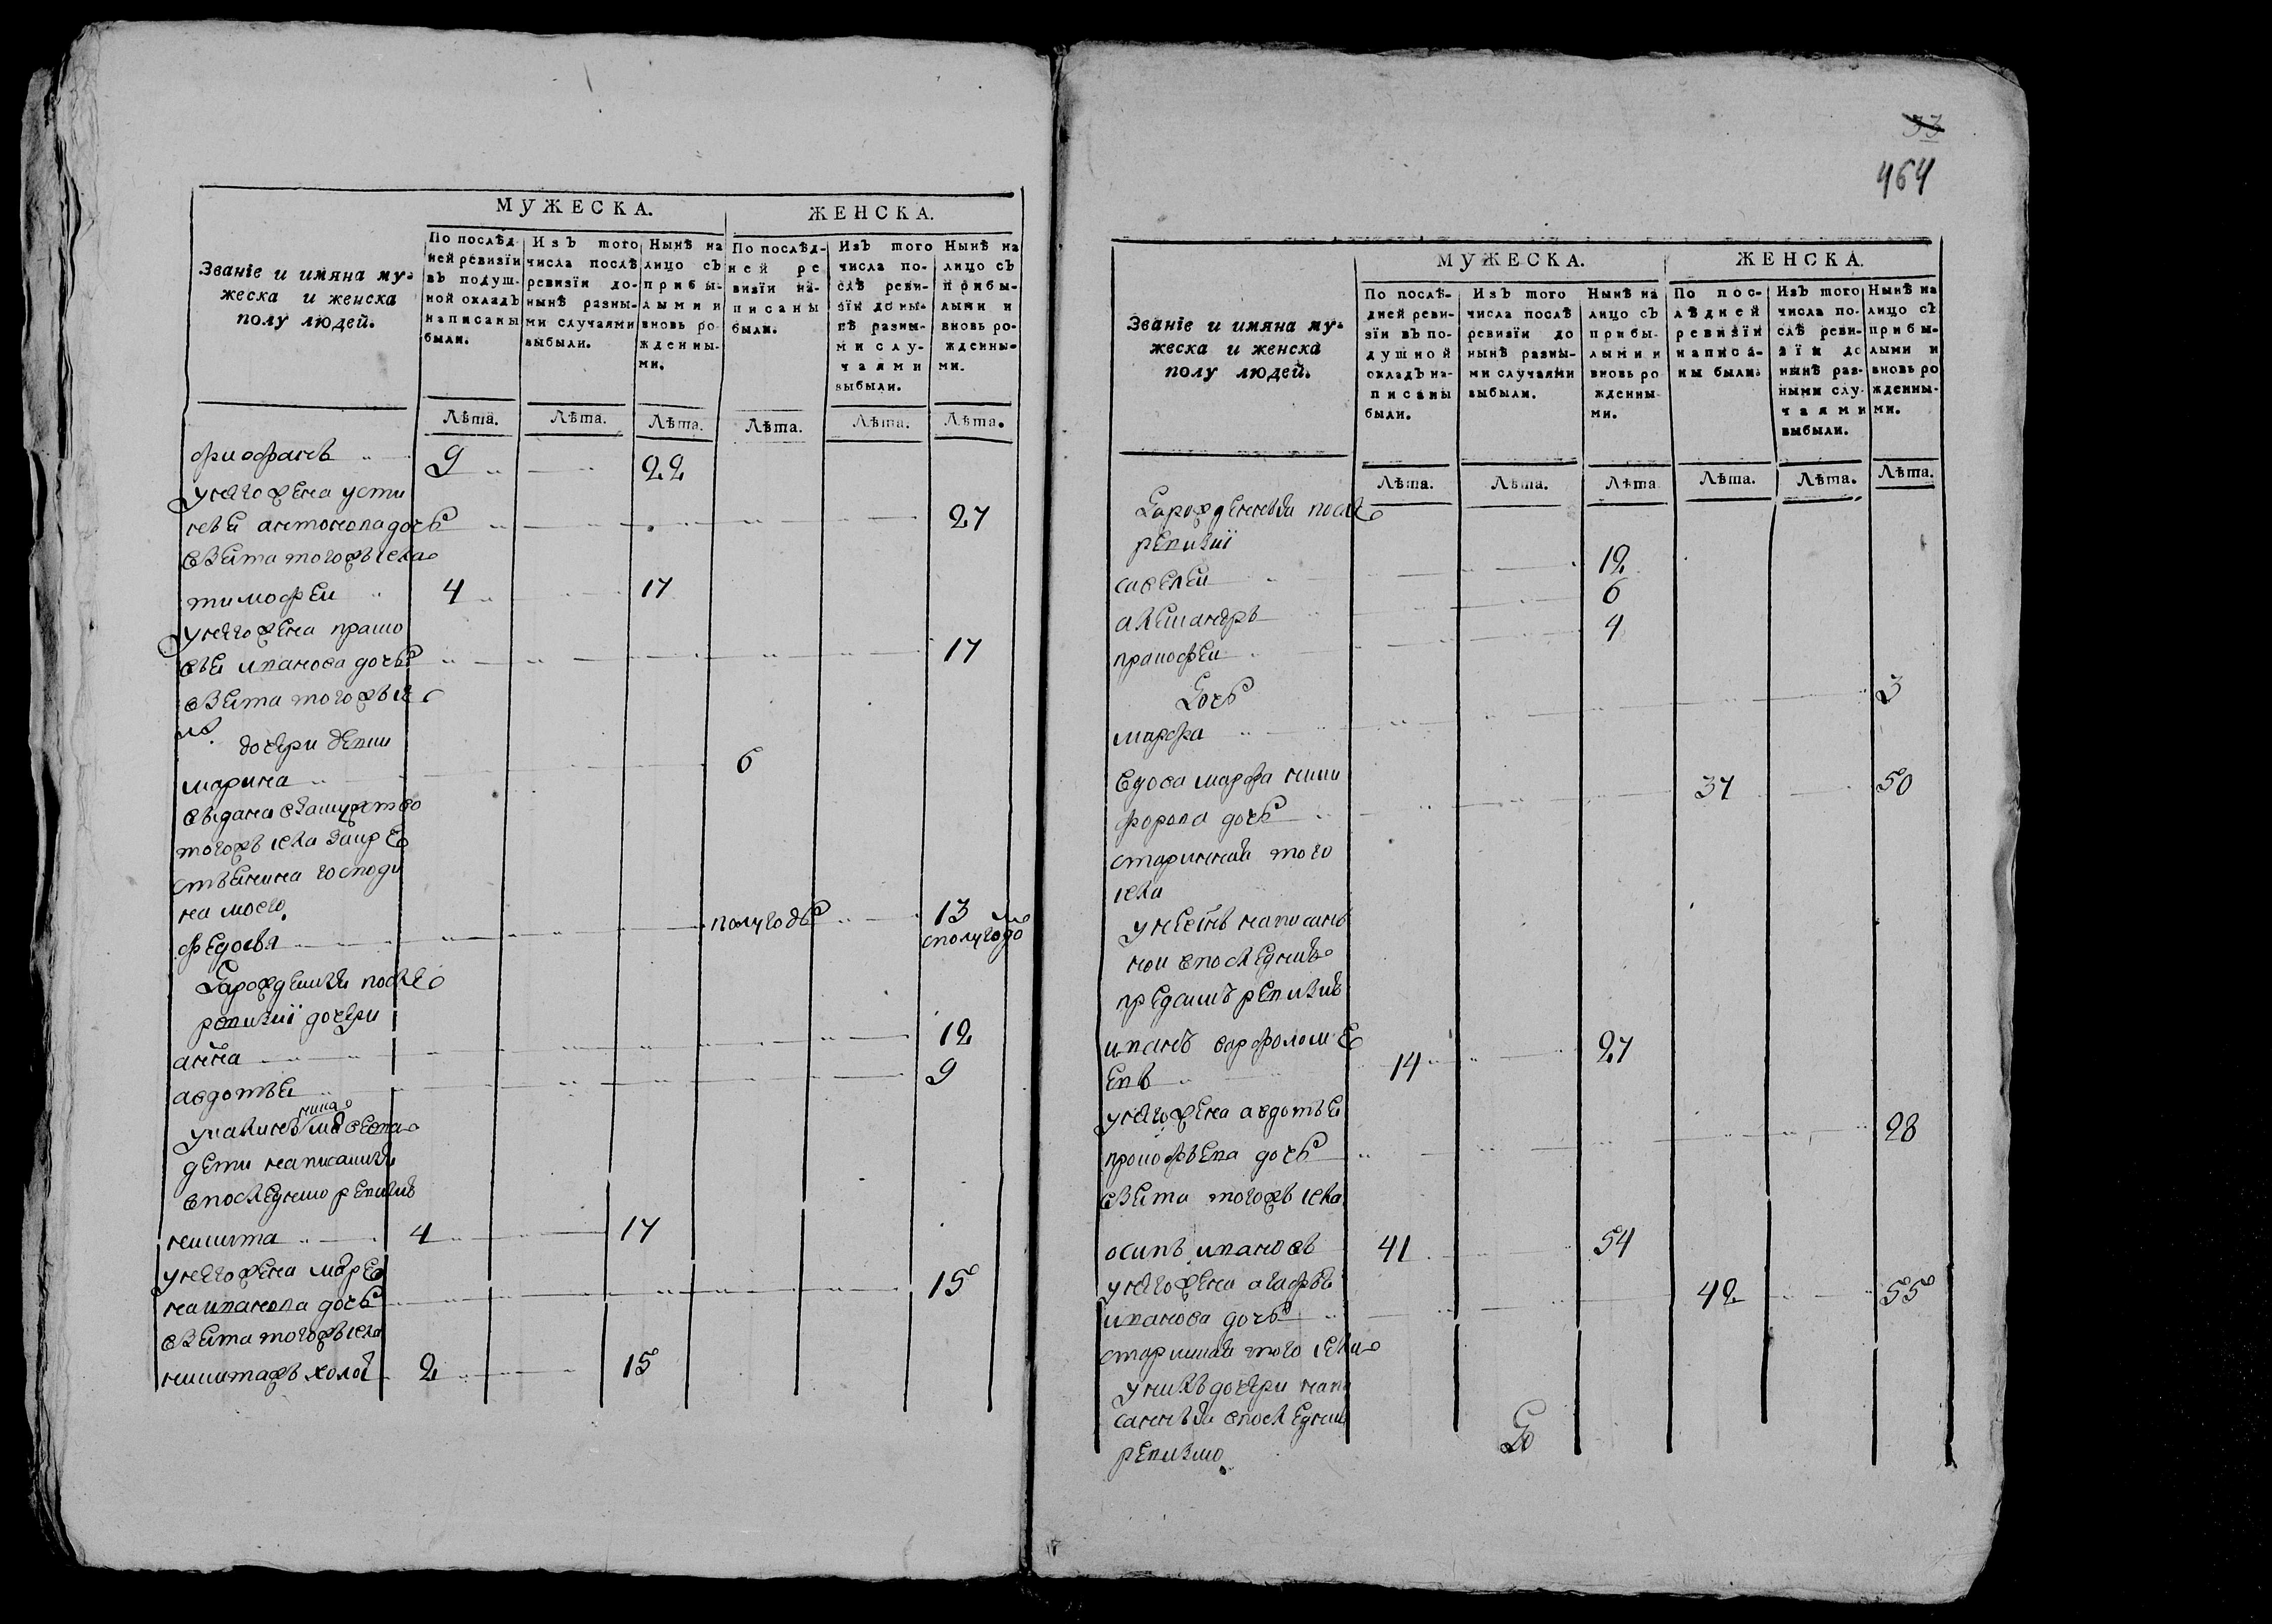 МУЖЕСКА.
ЖЕНСКА.
Званіе и имяна му-
жеска и женска
полу людей.
По послѣд-
ней ревизіи
въ подуш-
ной окладъ
написаны
были.
Изъ того
числа послѣ
ревизіи до-
нынѣ разны-
ми случаями
выбыли.
Нынѣ на
лицо съ
прибы-
лыми и
вновь ро-
жденны-
ми.
По послѣд-
ней ре
визіи на-
писаны
были.
Изъ того
числа по-
слѣ реви-
зіи до ны-
нѣ разны-
ми слу-
чаями
выбыли.
Нынѣ на
лицо съ
прибы-
лыми и
вновь ро-
жденны-
ми.
Лѣта. Лѣта. Лѣта. Лѣта. Лѣта. Лѣта.
фиофанъ 9 22
унего жена усти
ньѣ антонова дочь 27
взята тогожъ села
тимофеи 4 17
унего жена праско
вья иванова дочь 17
взята тогожъ се
ла
дочери девки
марина 6
выдана взамужство
тогожъ села за кре
стьянина господи
на моего
федосья полугодь 13 споло
рожденныя после
ревизии дочери
анна 12
авдотья 9
дети написанныя
впоследнею ревизию
никита 4 17
унего жена марѣ
на иванова дочь 15
взята тогожъ села
никитажъ холост 2 15
33
464
МУЖЕСКА.
ЖЕНСКА.
Званіе и имяна му-
жеска и женска
полу людей.
По послѣ-
дней реви-
зіи въ по-
душной
окладъ на-
писаны
были.
Изъ того
числа послѣ
ревизіи до
нынѣ разны-
ми случаями
выбыли.
Нынѣ на
лицо съ
прибы-
лыми и
вновь ро
жденны-
ми.
По пос-
лѣдней
ревизіи
написа-
ны были.
Изъ того
числа по-
слѣ реви-
зіи до
нынѣ раз-
ными слу-
чаями
выбыли.
Нынѣ на
лицо съ
прибы-
лыми и
вновь ро
жденны-
ми.
Лѣта. Лѣта. Лѣта Лѣта. Лѣта. Лѣта.
рожденныя после
ревизии
савелеи 12
александръ 6
пракофеи 4
дочь
марфа 3
вдова марфа ники
форова дочь 37 50
старинная того
села
унееснъ написанъ
нои впоследнию
предъ симъ ревизию
иванъ варфоломе
евъ 14 27
унего жена авдотья
прокофьева дочь 28
взята тогожъ села
осипъ ивановъ 41 54
унего жена агафья
иванова дочь 42 55
старинная того села
унихъ дочери напи
санныя впоследнию
ревизию